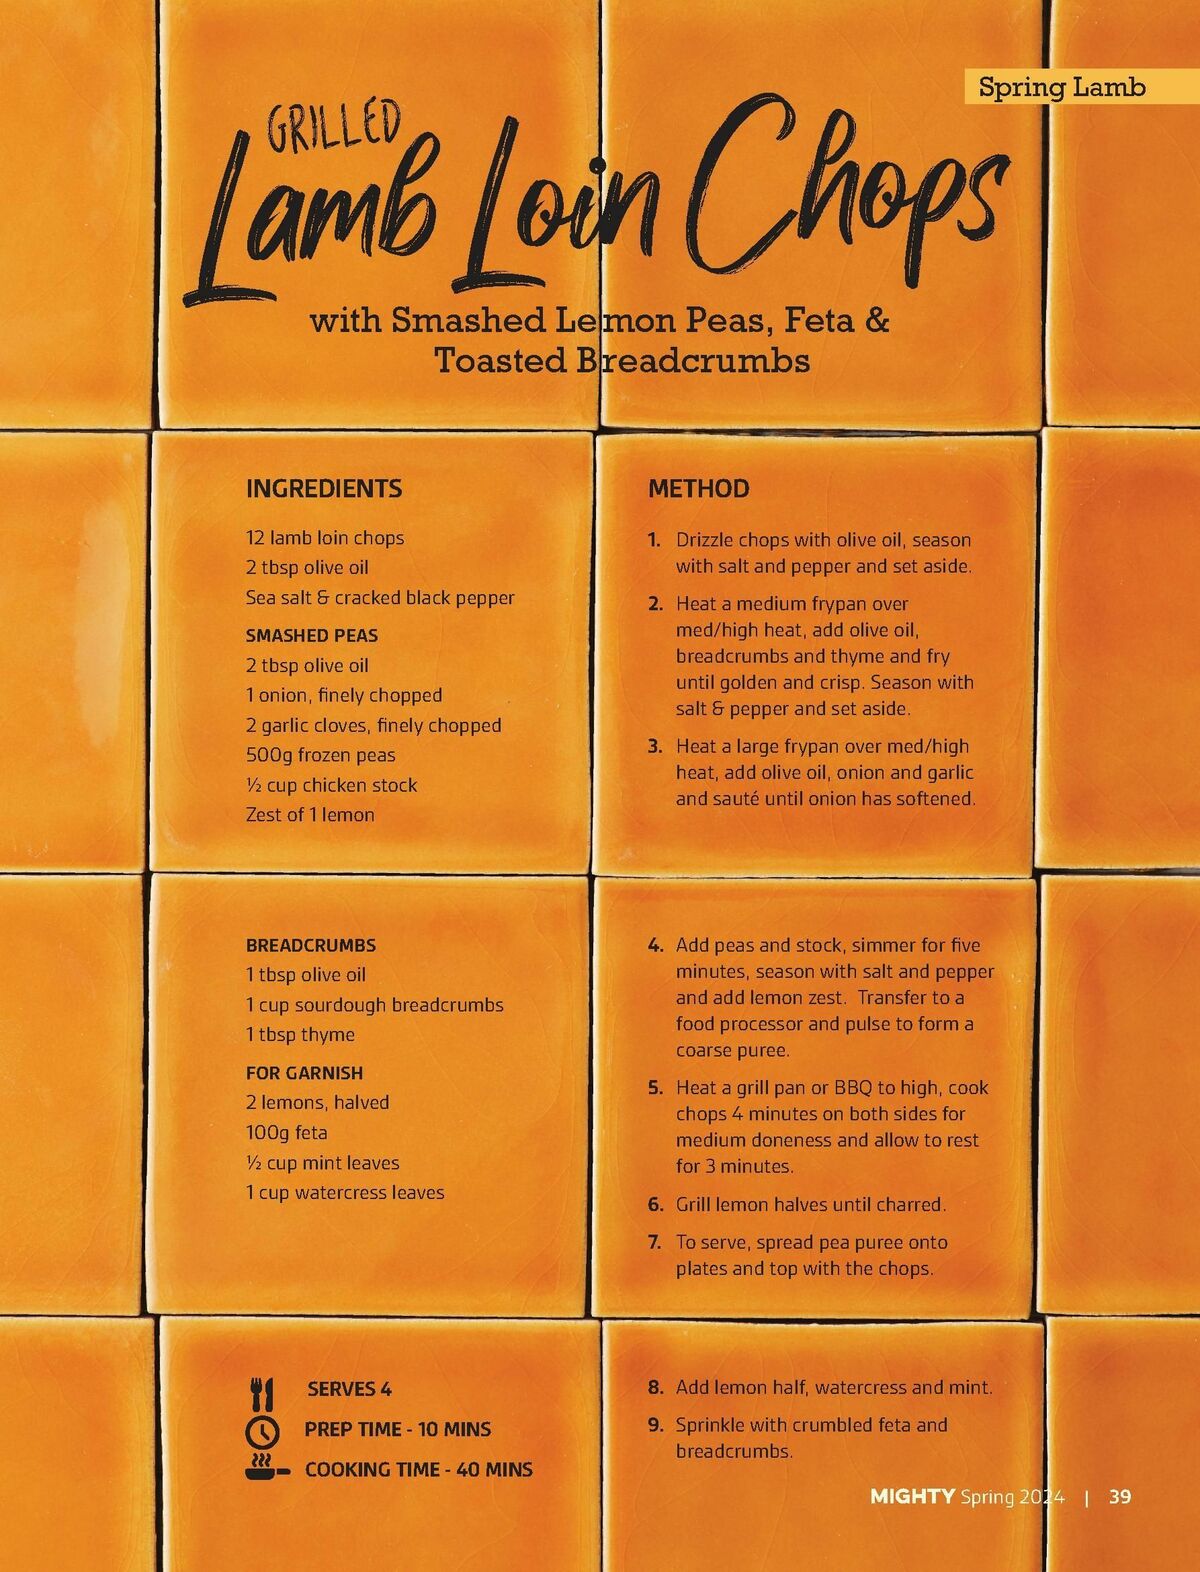 Spring Lamb
GRILLED
Lamb Loin Chops
with Smashed Lemon Peas, Feta &
Toasted Breadcrumbs
INGREDIENTS
12 lamb loin chops
2 tbsp olive oil
Sea salt & cracked black pepper
SMASHED PEAS
2 tbsp olive oil
1 onion, finely chopped
2 garlic cloves, finely chopped
500g frozen peas
½ cup chicken stock
Zest of 1 lemon
BREADCRUMBS
1 tbsp olive oil
1 cup sourdough breadcrumbs
1 tbsp thyme
FOR GARNISH
2 lemons, halved
100g feta
½ cup mint leaves
1 cup watercress leaves
SERVES 4
PREP TIME - 10 MINS
COOKING TIME - 40 MINS
METHOD
1. Drizzle chops with olive oil, season
with salt and pepper and set aside.
2. Heat a medium frypan over
med/high heat, add olive oil,
breadcrumbs and thyme and fry
until golden and crisp. Season with
salt & pepper and set aside.
3. Heat a large frypan over med/high
heat, add olive oil, onion and garlic
and sauté until onion has softened.
4. Add peas and stock, simmer for five
minutes, season with salt and pepper
and add lemon zest.  Transfer to a
food processor and pulse to form a
coarse puree.
5. Heat a grill pan or BBQ to high, cook
chops 4 minutes on both sides for
medium doneness and allow to rest
for 3 minutes.
6. Grill lemon halves until charred.
7. To serve, spread pea puree onto
plates and top with the chops.
8. Add lemon half, watercress and mint.
9. Sprinkle with crumbled feta and
breadcrumbs.
MIGHTY Spring 2024 | 39